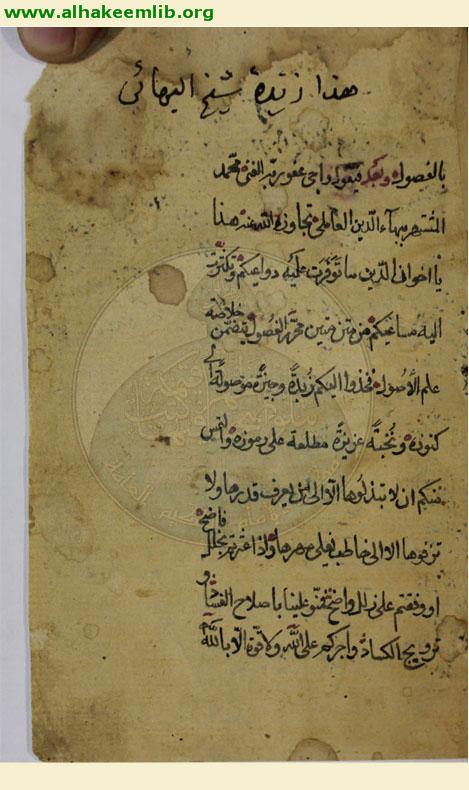 www.alhakeemlib.org
هذا زبدة شيخ البهائي
بالفصول وبعد فيقول راجي عفو ربه الغني محمد
المشتهر ببهاء الدين العاملي تجاوز الله عنه هذا
يا اخوان الدين ما توفرت عليه دواعيكم وتكثرت
اليه مساعيكم من متن متين محرر الفصول يتضمن خلاصة
علم الاصول فخذوا اليكم زبدة وجيزة موصلة الى
كنوزه ونخبة عزيزة مطلعة على رموزه والتمس
منكم ان لا تبذلوها الا الى من يعرف قدرها ولا
تزفوها الا الى خاطب يغلي مهرها واذا عثرتم بخلل فاضح
او وقفتم على زلل واضح فمنوا علينا باصلاح الفساد و
ترويج الكساد واجركم على الله ولا قوة الا بالله